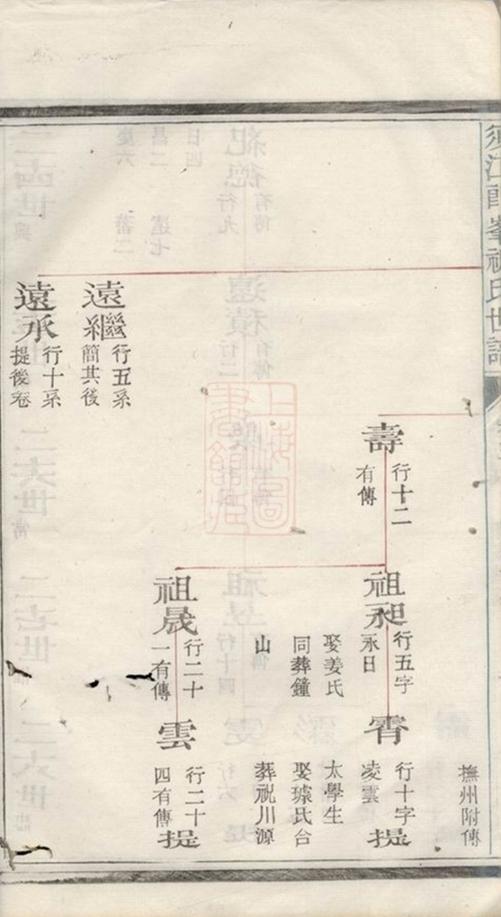 須江郎峯祝氏世譜
撫州附傳
壽
行十二
有傳
祖昶
行五字
永日
娶姜氏
同葬鐘
山
霄
行十字
凌雲
太學生
娶璩氏合
葬祝川源
提
祖晟
行二十
一有傳
雲
行二十
四有傳
提
遠繼
行五系
簡其後
遠承
行十系
提後卷